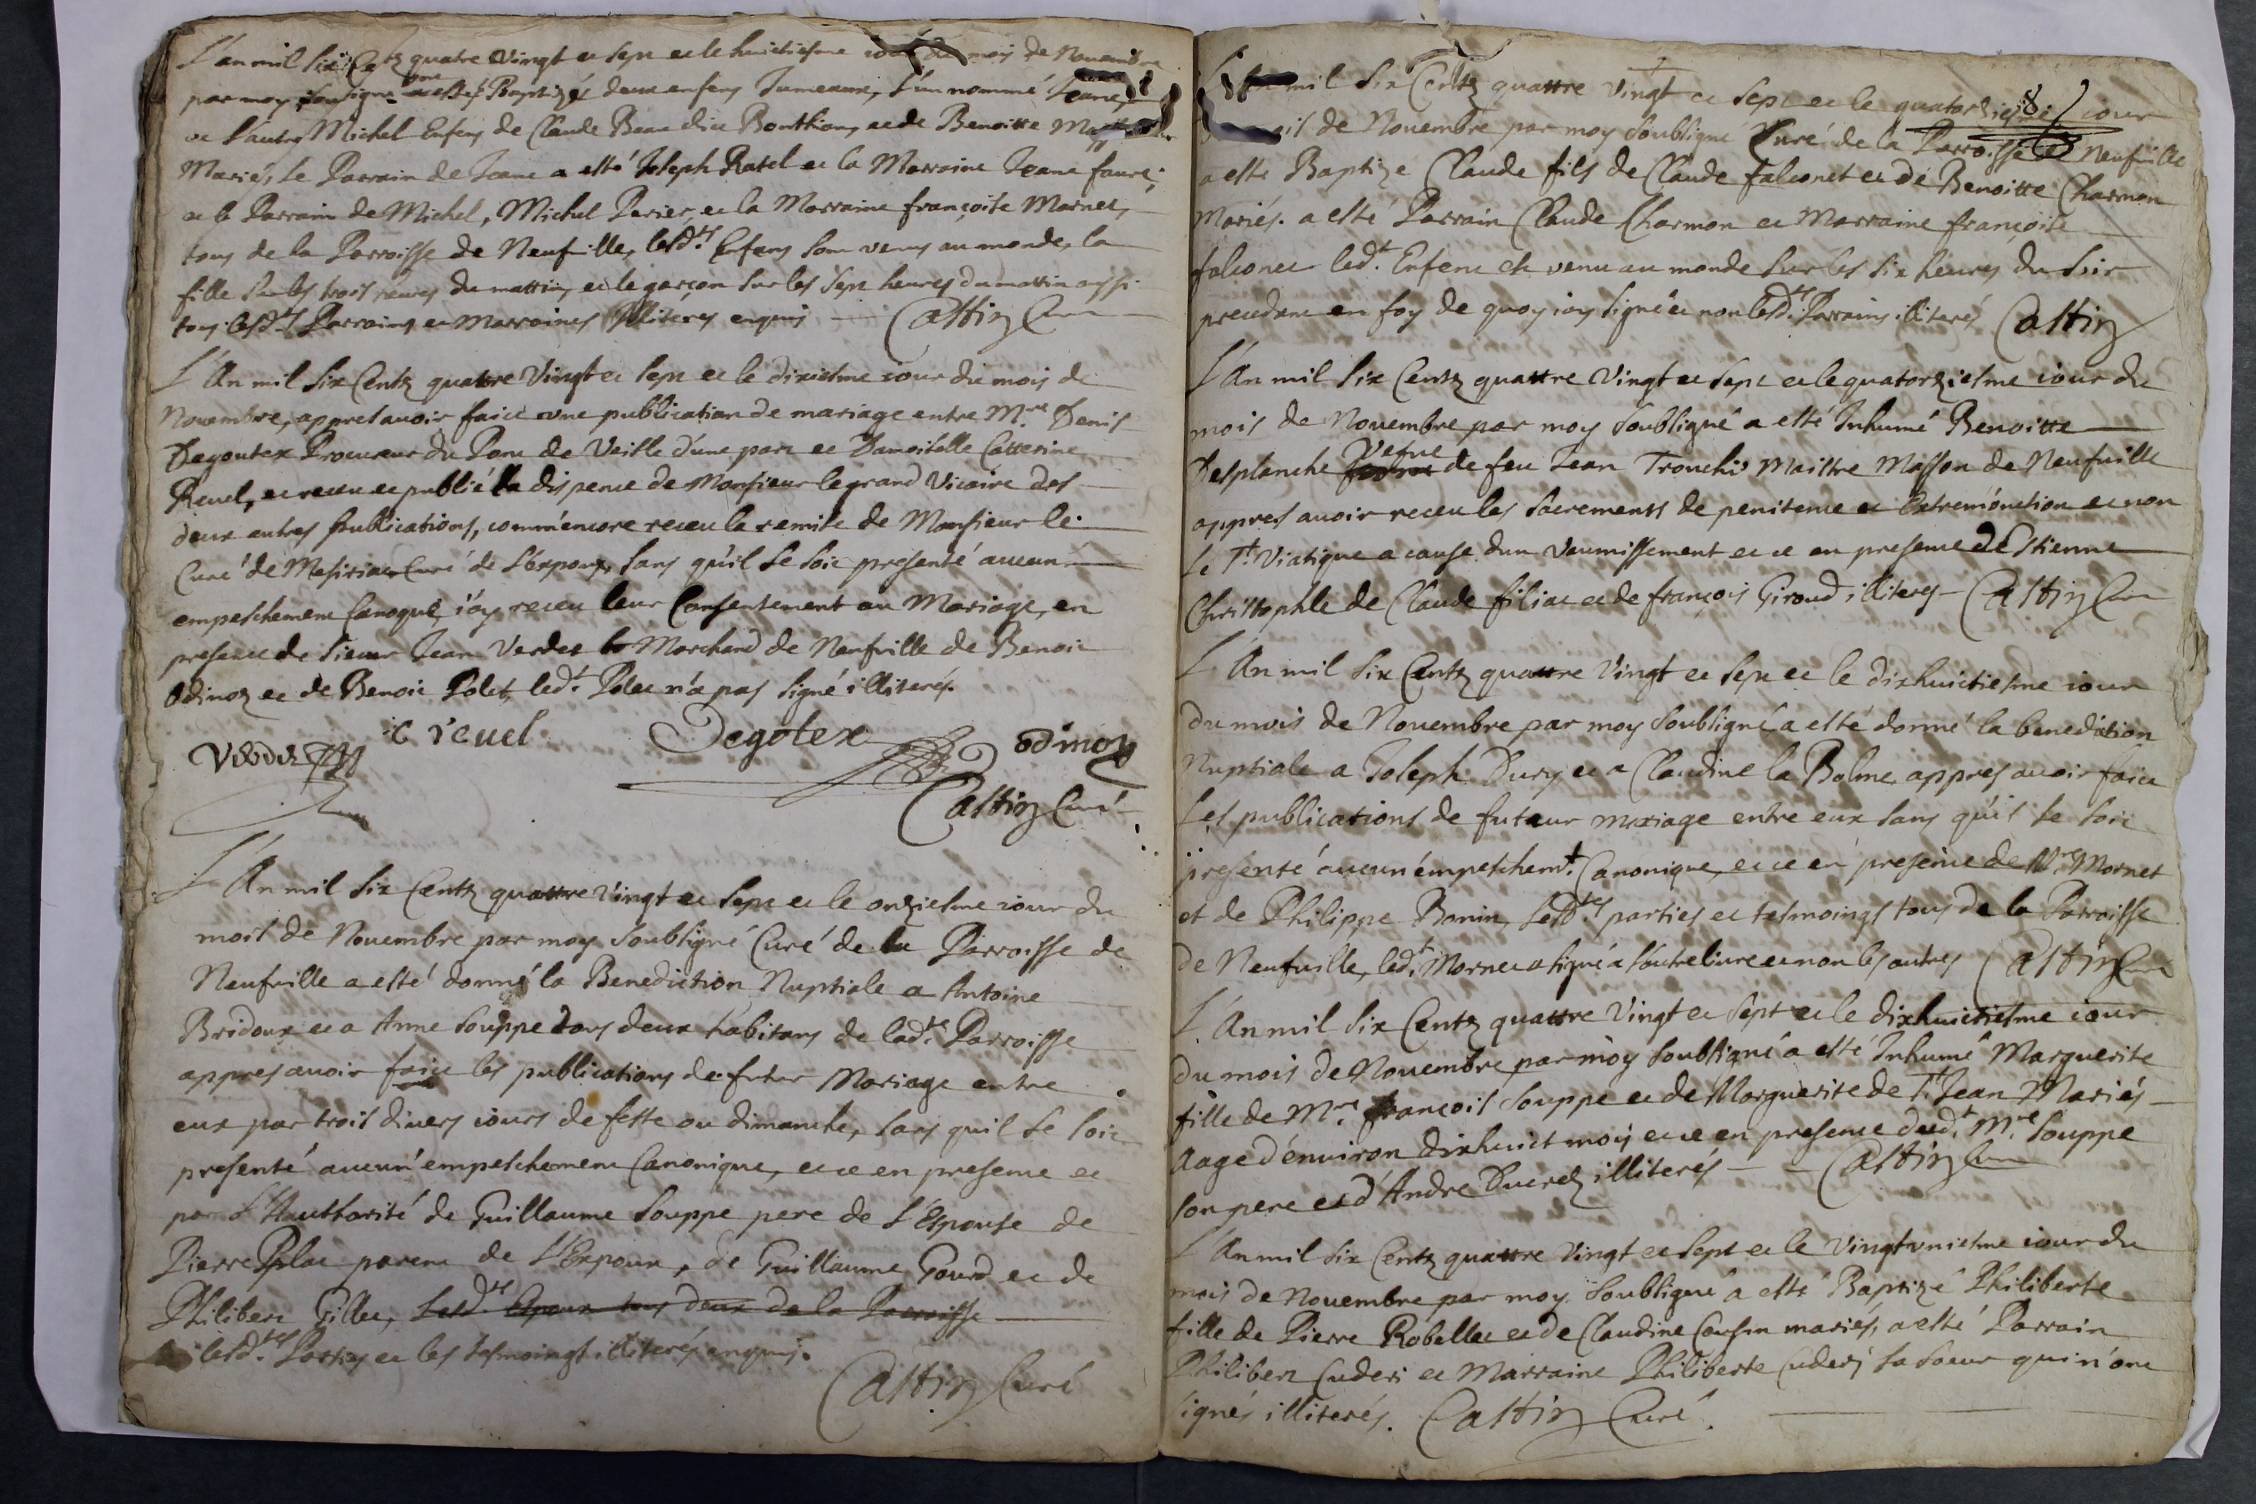 L'an mil six Cents quatre Vingt et sept et le huictiesme iour du mois de Nouembre
par moy soubsigné ont estés Baptizés deux enfens Jumeaux, l'un nommé Jeane,
et l'autre Michel Enfens de Claude Beau dit Bonthion, et de Benoitte
Mariés, le Parrain de Jeane a esté Joseph Ratel et la Marraine Jeane faure;
et le Parrain de Michel, Michel Perier, et la Marraine françoise Mornet,
tous de la Parroisse de Neufuille, lesd.ts Efens sont venus au monde, la
fille sur les trois heures du mattin, et le garçon sur les sept heures du matin aussi
tous lesd.ts Parrains et Marraines Illiterés enquis — Castin Curé
L'An mil six Cents quattre Vingt et sept et le dixiesme iour du mois de
Nouembre, appres auoir faict une publication de mariage entre M.re Denis
Degoutex Procureur du Pont de Veille d'une part et Damoiselle Catterine
Reuel, et receu et publié la dispence de Monsieur le grand Vicaire des
deux autres publications, comm'encore receu la remise de Monsieur le
Curé de Curé de l'éspoux, sans qu'il se soit présenté aucun
empeschement Canoque, i'ay receu leur Consentement au Mariage, en
presence de sieur Jean Verdet Marchand de Neufville de Benoit
Odinoz et de Benoit Polet, led.t Polet n'a pas signé illiterés.
Verdet C reuel Degotex odinoz
Castin Curé
L'An mil six Cents quattre Vingt et sept et le onziesme iour du
mois de Nouembre par moy soubsigné Curé de la Parroisse de
Neufuille a esté donné la Benediction Nuptiale a Antoine
Bridoux et a Anne Souppe tous deux habitans de lad.te Parroisse
appres auoir faict les publications de futur Mariage entre
eux par trois diuers iours de feste ou dimanche, sans quil se soit
presenté aucun empeschement Canonique, et ce en presence et
par l'Authorité de Guillaume Souppe pere de l'Espouse de
Pierre parent de l'Expoux, de Guillaume Gourd et de
Philibert Gillet, Lesd.ts Epoux tous deux de la Parroisse
lesd.tes Parties et les tesmoingt illiterés enquis.
Castin Curé
8
L'An mil six Cents quattre Vingt et sept et le quatorziesme iour
du mois de Nouembre par moy soubsigné Curé de la Parroisse de Neufuille
a esté Baptize Claude fils de Claude falconet et de Benoitte Charmon
Mariés. a esté Parrain Claude Charmon et Marraine françoise
falconet led.t Enfent est venu au monde sur les six heures du soir
precedant en foy de quoy iay signé et non lesd.ts Parrains illiterés Castin
L'An mil six Cents quattre Vingt et sept et le quatorziesme iour du
mois de Nouembre par moy soubsigné a esté Inhumé Benoitte
Desplanche Vefue de feu Jean Tronchi Maistre Masson de Neufuille
appres auoir receu les sacrements de penitence et Extremónction et non
le S.t Viatique a cause dun Vaumissement et ce en presence de Estienne
Christophle de Claude filiat et de françois Giroud illiteres — Castin Curé
L'An mil six Cents quattre Vingt et sept et le dixhuictiesme iour
du mois de Nouembre par moy soubsigné a esté donné la benediction
Nuptiale a Joseph Dury et a Claudine la Balme appres auoir faict
Les publications de futeur mariage entre eux sans qu'il se soit
présenté aucun émpeschem.t Canonique, et ce en presence de Mornet
et de Philippe Bonin, Lesd.tes parties et tesmoings tous de la Parroisse
de Neufuille, led.t Mornet a signé a l'autre liure et non les autres Castin Curé
L'An mil six Cents quattre Vingt et sept et le dixhuictiesme iour
du mois de Nouembre par moy soubsigné a esté Inhumé Marguerite
fille de M.re françois Souppe et de Marguerite de S.t Jean Mariés
Aage d'enuiron dixhuict mois et ce en presence dud.t M.re Souppe
son pere et d'Andre Ducrez illiterés — Castin Curé
L'An mil six Cents quattre Vingt et sept et le Vingtuniesme iour du
mois de Nouembre par moy soubsigné a esté Baptizé Philiberte
fille de Pierre Robellet et de Claudine Cousin mariés, a esté Parrain
Philibert Cuderi et Marraine Philiberte Cuderi sa soeur qui n'ont
signés illiterés. Castin Curé.